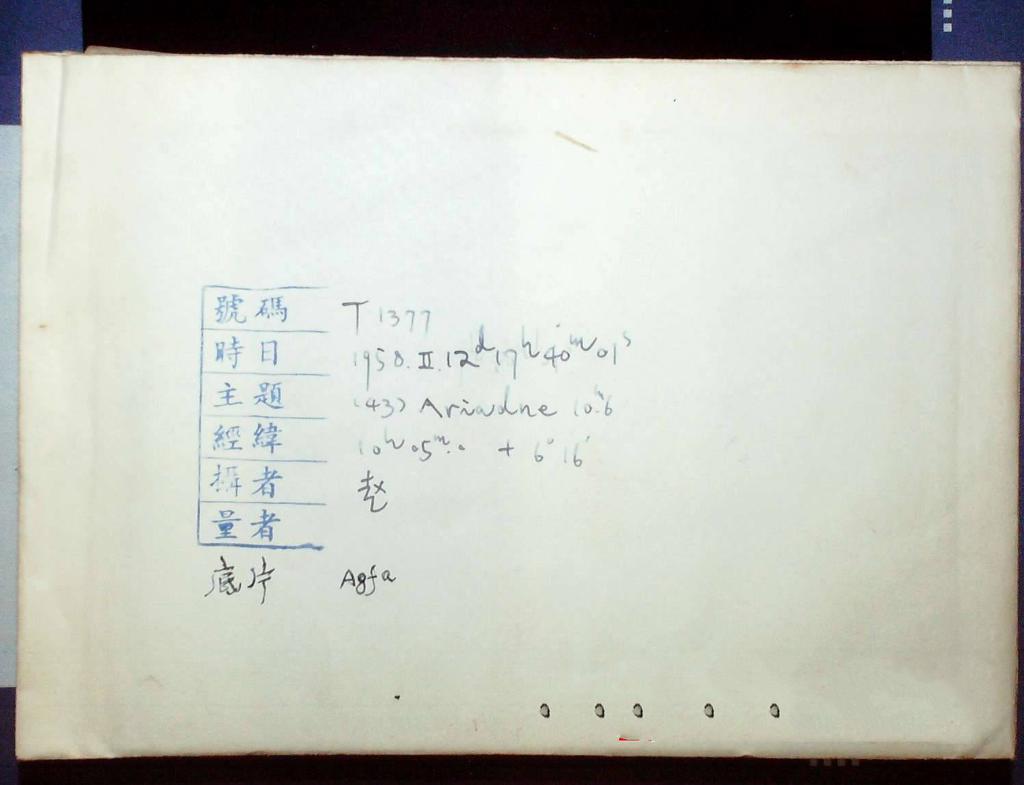 號碼 T 1377
時日 1958. II. 12ᵈ 17ʰ 40ᵐ 01ˢ
主題 (43) Ariadne 10ᵐ.6
經緯 10ʰ 05ᵐ.0 + 6° 16′
攝者 赵
量者
底片 Agfa